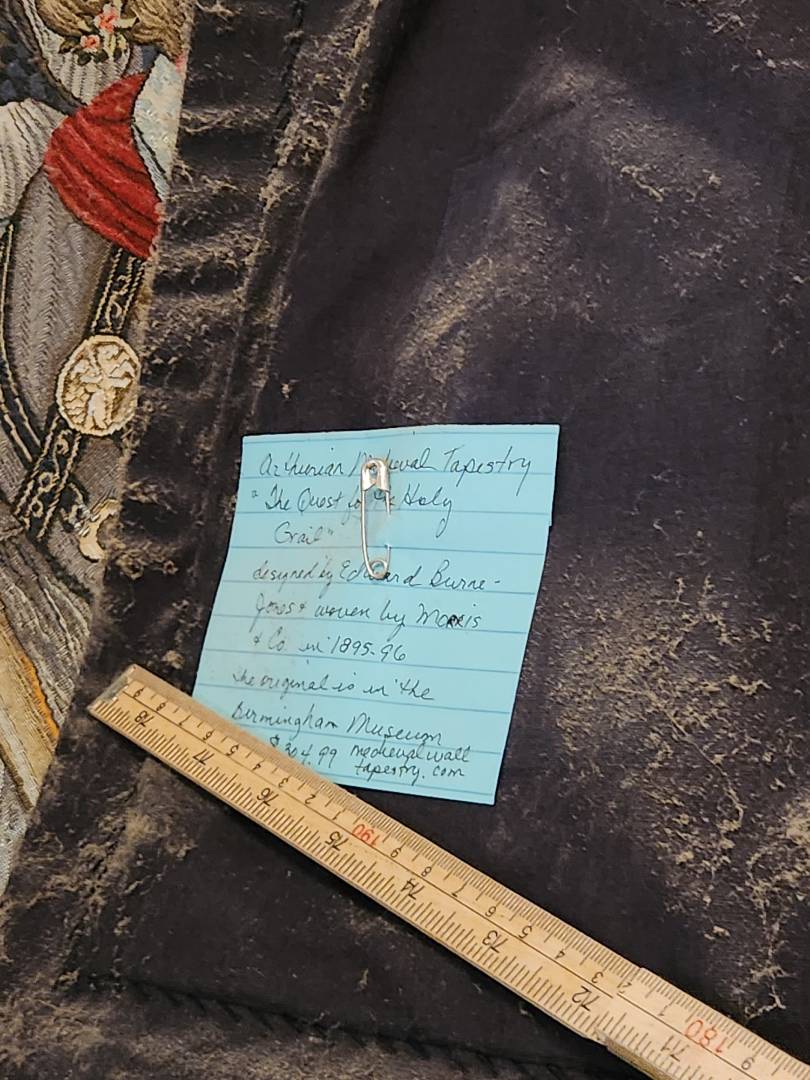 Arthurian Medieval Tapestry
"The Quest for the Holy
Grail"
designed by Edward Burne-
Jones & woven by Morris
& Co. in 1895-96
The original is in the
Birmingham Museum
$304.99 medievalwall
tapestry.com
78
77
76
75
74
73
72
71
9 8 7 6 5 4 3 2 1 190 9 8 7 6 5 4 3 2 1 180 9